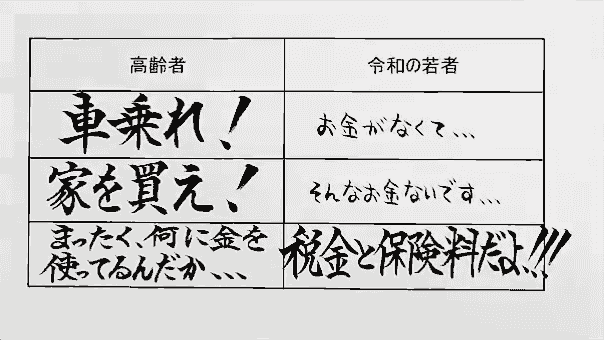 高齢者
令和の若者
車乗れ！
お金がなくて、、、
家を買え！
そんなお金ないです、、、
まったく、何に金を
使ってるんだか、、、
税金と保険料だよ、!!!